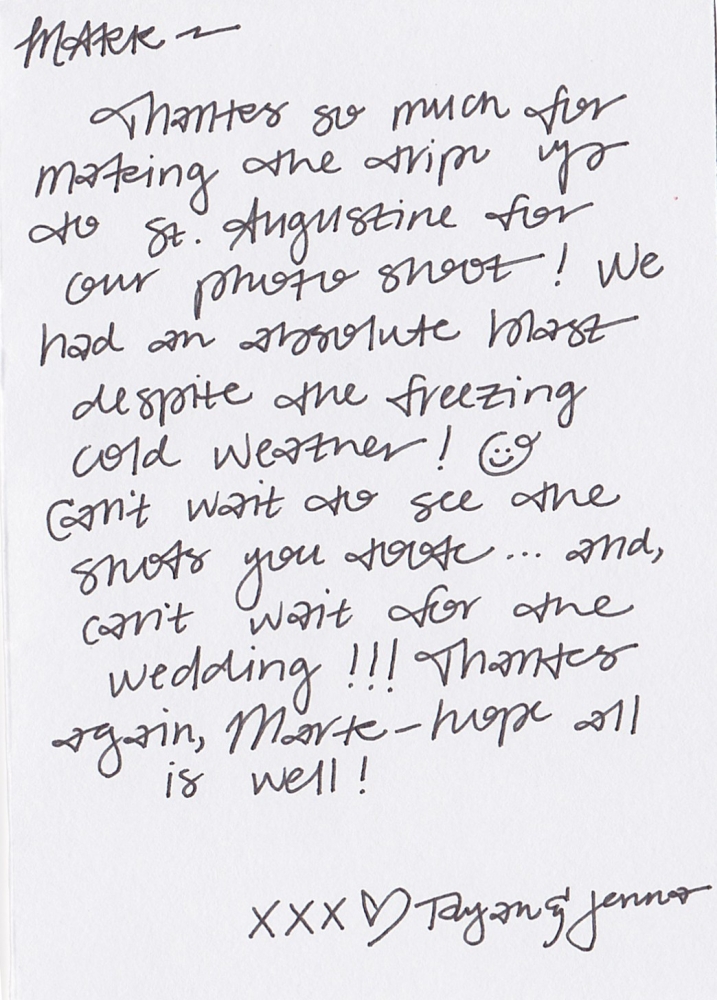 MARK ~
Thanks so much for
making the trip up
to St. Augustine for
our photo shoot! We
had an absolute blast
despite the freezing
cold weather! ☺
Can't wait to see the
shots you took... and,
can't wait for the
wedding!!! Thanks
again, Mark - hope all
is well!
XXX ♡ Ryan & Jenna